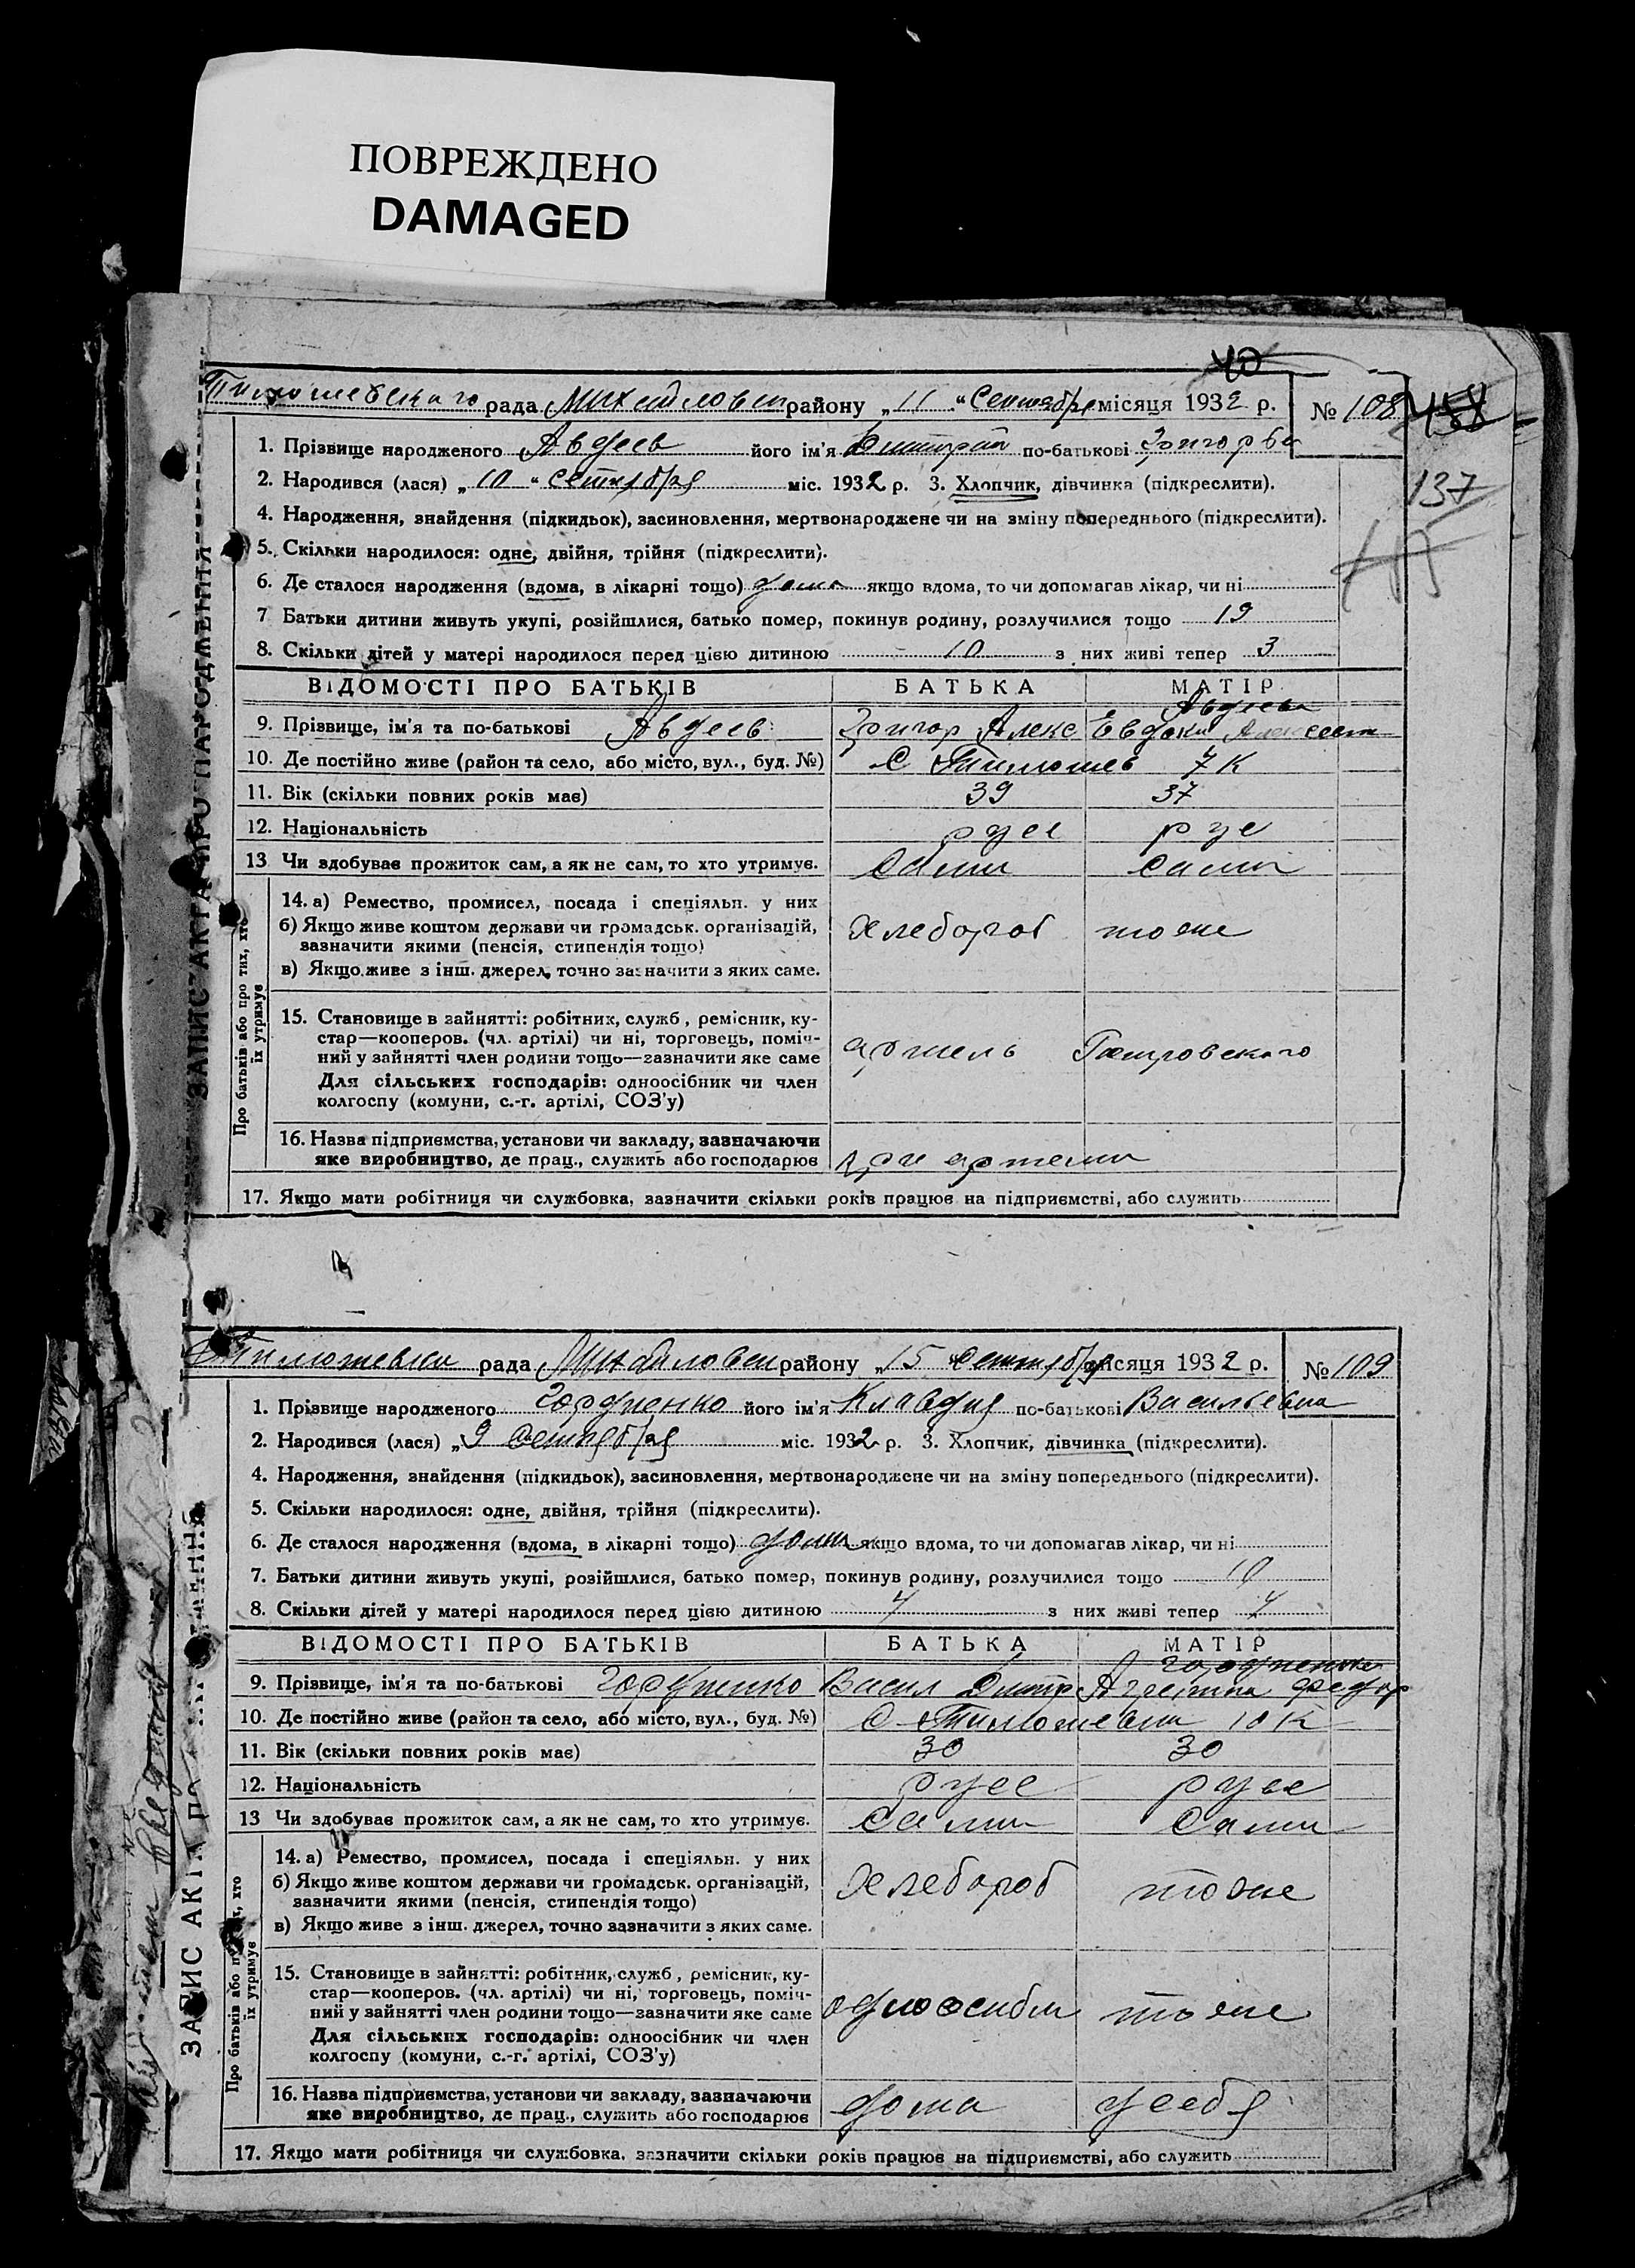 ПОВРЕЖДЕНО
DAMAGED
40
Тимошевского рада Михайловск району „11“ Сентября місяця 1932 р. № 108
137
1. Прізвище народженого Авдеев його ім'я Дмитрий по-батькові Григорьев
2. Народився (лася) „10“ сентября міс. 1932 р. 3. Хлопчик, дівчинка (підкреслити).
4. Народження, знайдення (підкидьок), засиновлення, мертвонароджене чи на зміну попереднього (підкреслити).
5. Скільки народилося: одне, двійня, трійня (підкреслити).
6. Де сталося народження (вдома, в лікарні тощо) дома якщо вдома, то чи допомагав лікар, чи ні
7 Батьки дитини живуть укупі, розійшлися, батько помер, покинув родину, розлучилися тощо 19
8. Скільки дітей у матері народилося перед цією дитиною 10 з них живі тепер 3
ВІДОМОСТІ ПРО БАТЬКІВ БАТЬКА МАТІР
Авдеева
9. Прізвище, ім'я та по-батькові Авдеев Григор Алекс Евдоки Алексеевн
10. Де постійно живе (район та село, або місто, вул., буд. №) С Тимошев 7 К
11. Вік (скільки повних років має) 39 37
12. Національність русс рус
13 Чи здобуває прожиток сам, а як не сам, то хто утримує. сами сами
14. а) Ремество, промисел, посада і спеціяльн. у них
б) Якщо живе коштом держави чи громадськ. організацій, Хлебороб тоже
зазначити якими (пенсія, стипендія тощо)
в) Якщо живе з інш. джерел, точно зазначити з яких саме.
15. Становище в зайнятті: робітник, служб, ремісник, ку-
стар—кооперов. (чл. артілі) чи ні, торговець, поміч-
ний у зайнятті член родини тощо—зазначити яке саме артель Петровского
Для сільських господарів: одноосібник чи член
колгоспу (комуни, с.-г. артілі, СОЗ'у)
16. Назва підприємства, установи чи закладу, зазначаючи
яке виробництво, де прац., служить або господарює при артели
17. Якщо мати робітниця чи службовка, зазначити скільки років працює на підприємстві, або служить
ЗАПИС АКТА ПРО НАРОДЖЕННЯ
Про батьків або про тих, хто
їх утримує
Тимошевки рада Михайловск району „15 сентября місяця 1932 р. № 109
1. Прізвище народженого Гордиенко його ім'я Клавдия по-батькові Васильевна
2. Народився (лася) „9 Сентября міс. 1932 р. 3. Хлопчик, дівчинка (підкреслити).
4. Народження, знайдення (підкидьок), засиновлення, мертвонароджене чи на зміну попереднього (підкреслити).
5. Скільки народилося: одне, двійня, трійня (підкреслити).
6. Де сталося народження (вдома, в лікарні тощо) дома якщо вдома, то чи допомагав лікар, чи ні
7. Батьки дитини живуть укупі, розійшлися, батько помер, покинув родину, розлучилися тощо 10
8. Скільки дітей у матері народилося перед цією дитиною 4 з них живі тепер 4
ВІДОМОСТІ ПРО БАТЬКІВ БАТЬКА МАТІР
Гордиенко
9. Прізвище, ім'я та по-батькові Гордиенко Васил Дмитр Агрепина Федор
10. Де постійно живе (район та село, або місто, вул., буд. №) С Тимошевки 10 К
11. Вік (скільки повних років має) 30 30
12. Національність русс русс
13 Чи здобуває прожиток сам, а як не сам, то хто утримує. Сами Сами
14. а) Ремество, промисел, посада і спеціяльн. у них
б) Якщо живе коштом держави чи громадськ. організацій, Хлебороб тоже
зазначити якими (пенсія, стипендія тощо)
в) Якщо живе з інш. джерел, точно зазначити з яких саме.
15. Становище в зайнятті: робітник, служб, ремісник, ку-
стар—кооперов. (чл. артілі) чи ні, торговець, поміч-
ний у зайнятті член родини тощо—зазначити яке саме тоже
Для сільських господарів: одноосібник чи член
колгоспу (комуни, с.-г. артілі, СОЗ'у)
16. Назва підприємства, установи чи закладу, зазначаючи
яке виробництво, де прац., служить або господарює дома у себя
17. Якщо мати робітниця чи службовка, зазначити скільки років працює на підприємстві, або служить
ЗАПИС АКТА
Про батьків або хто
їх утримує